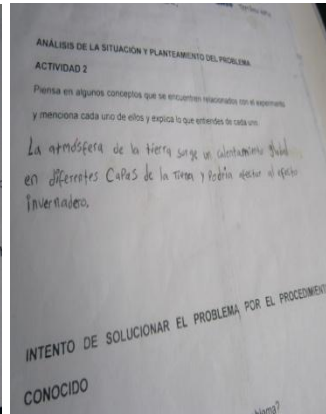 ANÁLISIS DE LA SITUACIÓN Y PLANTEAMIENTO DEL PROBLEMA
ACTIVIDAD 2
Piensa en algunos conceptos que se encuentren relacionados con el experimento
y menciona cada uno de ellos y explica lo que entiendes de cada uno.
La atmósfera de la tierra surge un calentamiento global
en diferentes CaPas de la Tierra y Podria afectar al efecto
invernadero.
INTENTO DE SOLUCIONAR EL PROBLEMA POR EL PROCEDIMIENTO
CONOCIDO